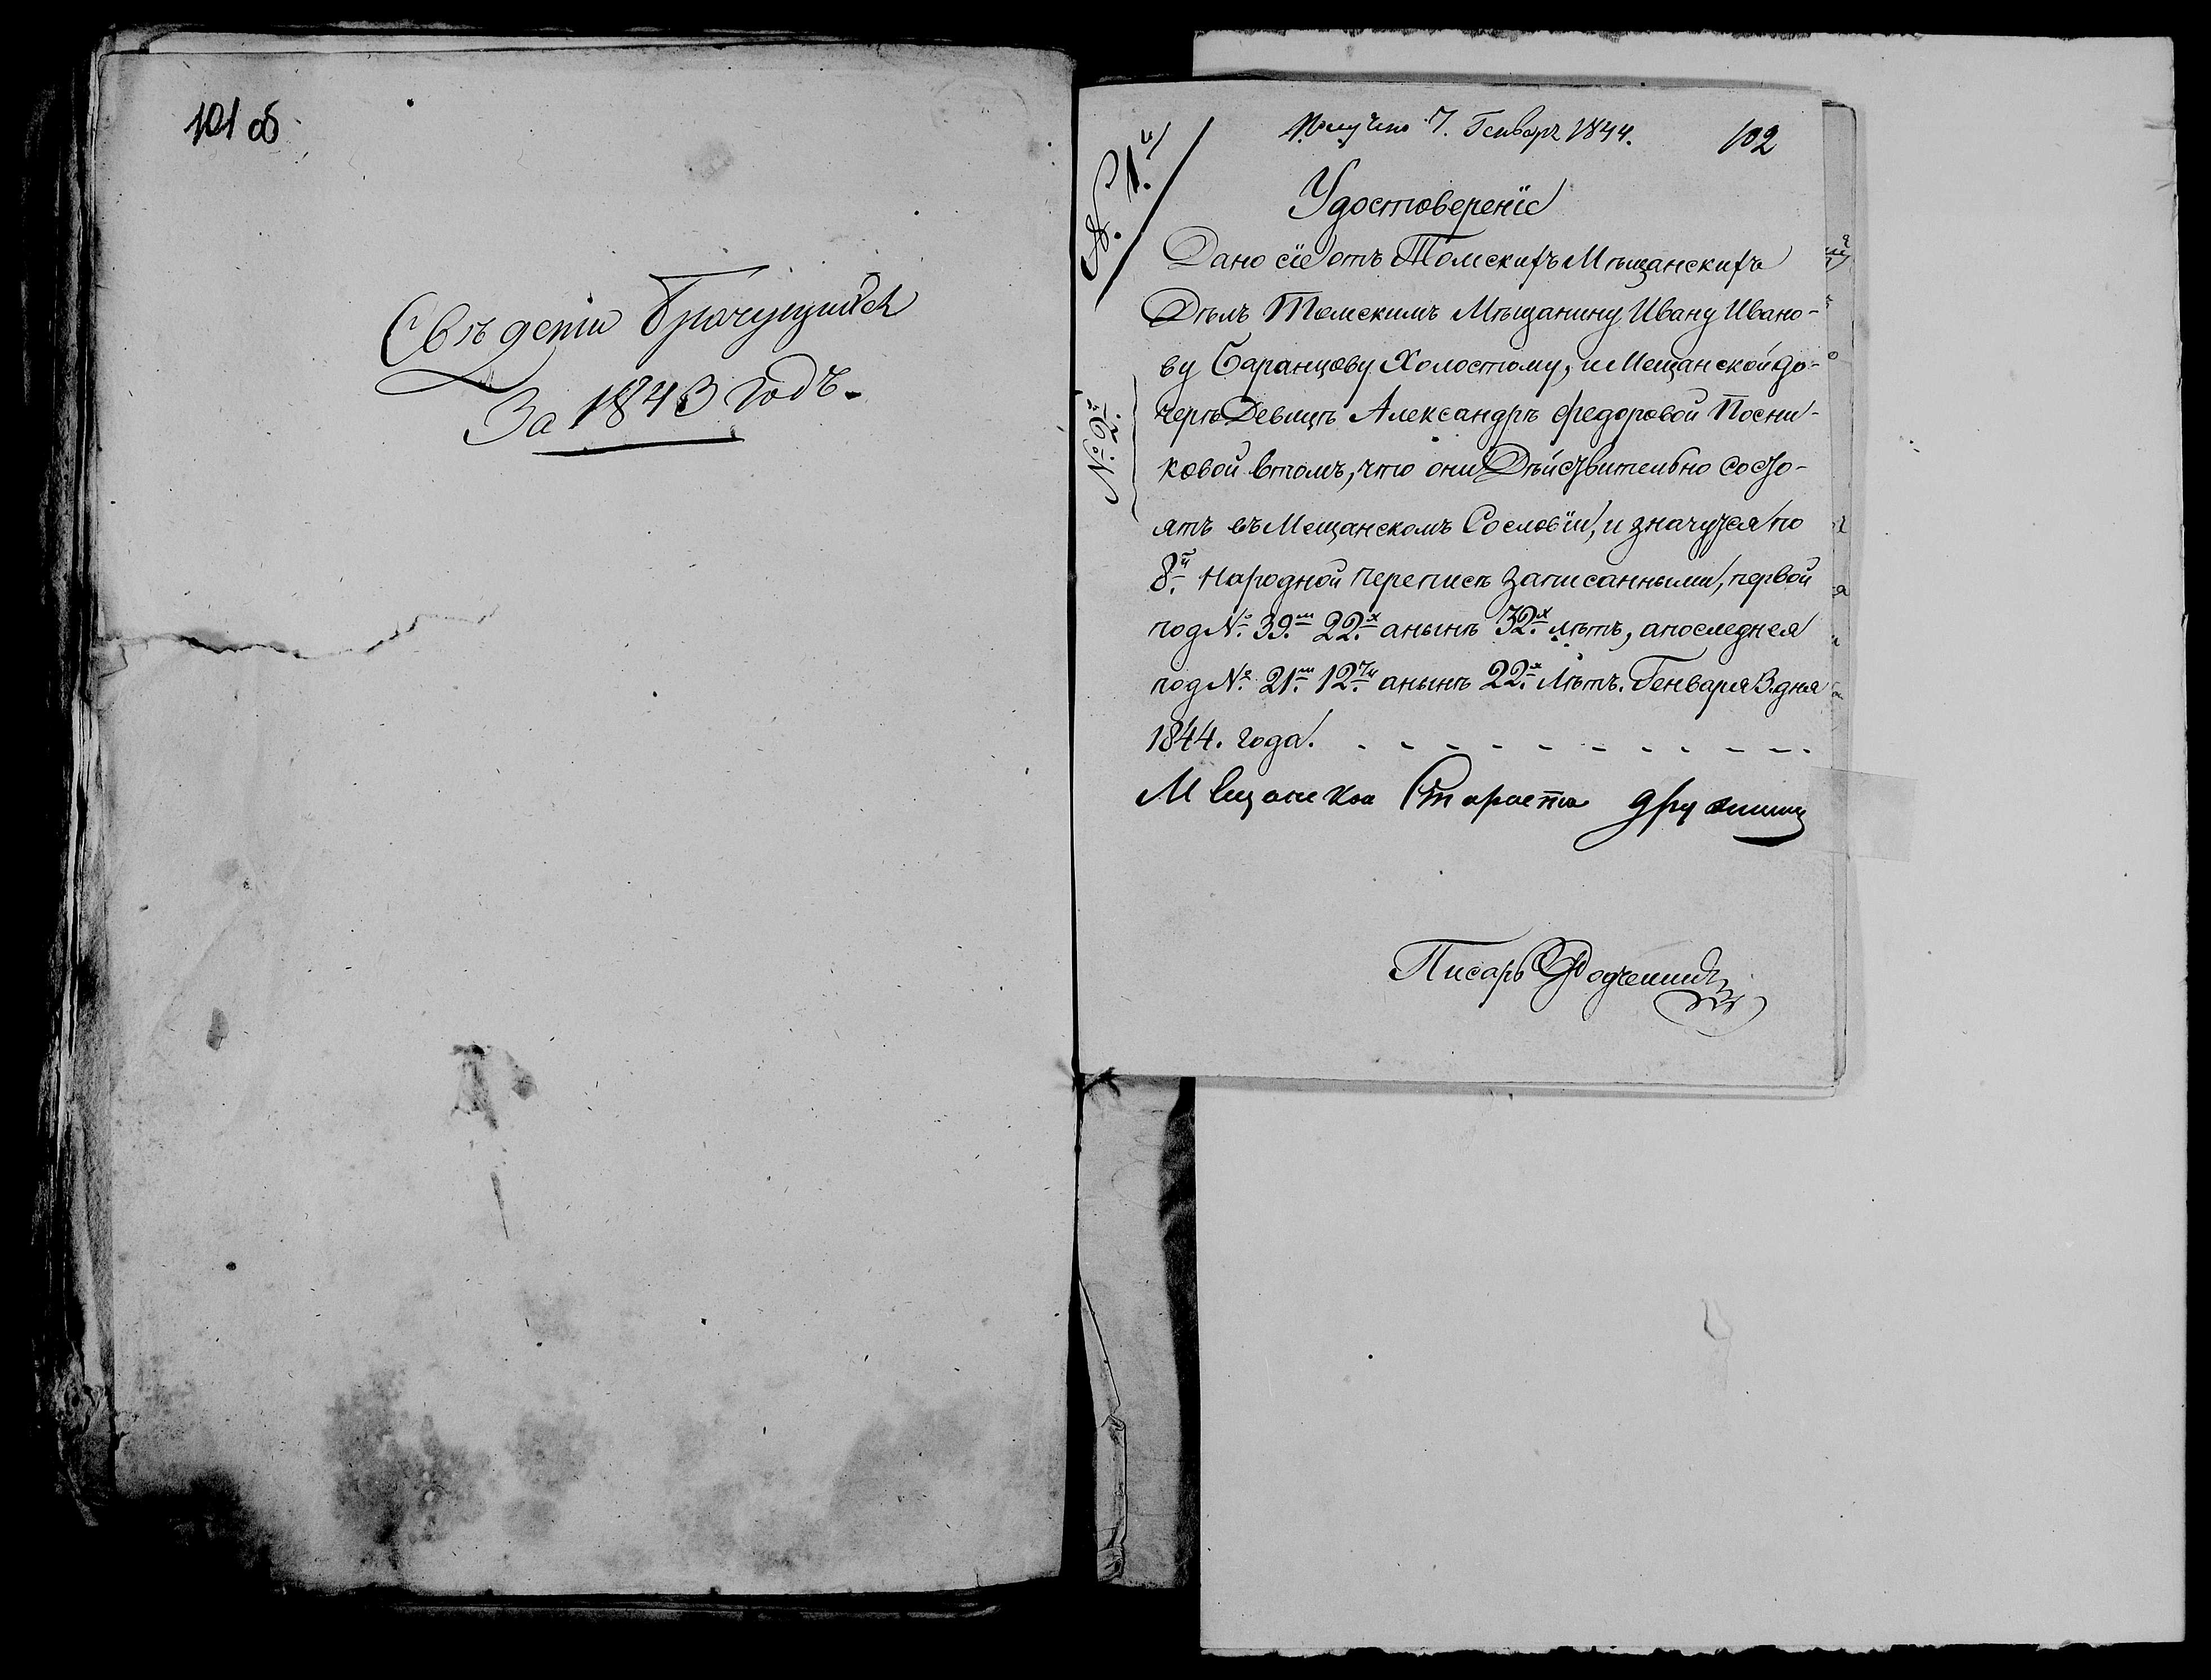 101 об
Свѣдении Брачующихся
За 1843 годъ.
Получено 7. Генваря 1844.
102
№ 1й
Удостоверенiе
Дано сiе отъ Томскихъ Мѣщанскихъ
Дѣлъ Томскимъ Мѣщанину Ивану Ивано-
ву Баранцову Холостому, и Мещанской до-
черѣ Девицѣ Александрѣ Федоровой Посни-
№ 2й
ковой втомъ, что они Дѣйствительно состо-
ятъ въ Мещанскомъ Сословiи, и значутся по
8й Народной переписѣ записанными, первой
под № 39м 22х анынѣ 32х лѣтъ, апоследнея
под № 21м 12ти анынѣ 22х Лѣтъ. Генваря 3. дня
1844. года.
Мещанскои Староста Дружинин
Писарь